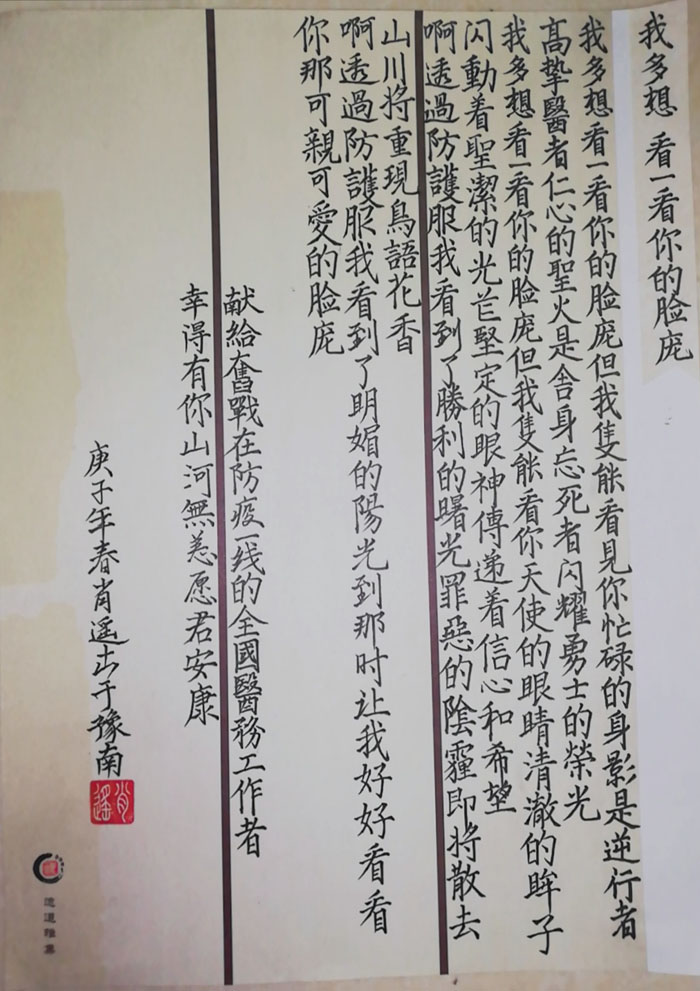 我多想 看一看你的脸庞
我多想看一看你的脸庞但我隻能看見你忙碌的身影是逆行者
高擎醫者仁心的聖火是舍身忘死者闪耀勇士的榮光
我多想看一看你的脸庞但我隻能看你天使的眼睛清澈的眸子
闪動着聖潔的光芒堅定的眼神傳递着信心和希望
啊透過防護服我看到了勝利的曙光罪惡的陰霾即将散去
山川将重現鳥語花香
啊透過防護服我看到了明媚的陽光到那时让我好好看看
你那可親可愛的脸庞
献給奮戰在防疫一线的全國醫務工作者
幸得有你山河無恙愿君安康
庚子年春肖遥書于豫南
肖遥
道道雅集